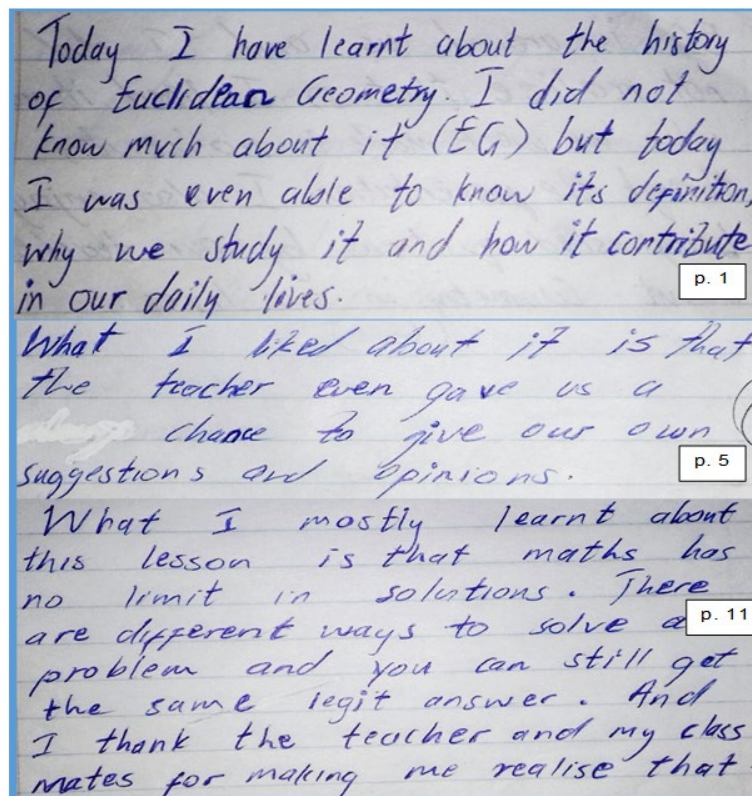 Today I have learnt about the history
of Euclidean Geometry. I did not
know much about it (EG) but today
I was even able to know its definition,
why we study it and how it contribute
in our daily lives.
p. 1
What I liked about it is that
the teacher even gave us a
chance to give our own
suggestions and opinions.
p. 5
What I mostly learnt about
this lesson is that maths has
no limit in solutions. There
are different ways to solve a
p. 11
problem and you can still get
the same legit answer. And
I thank the teacher and my class
mates for making me realise that